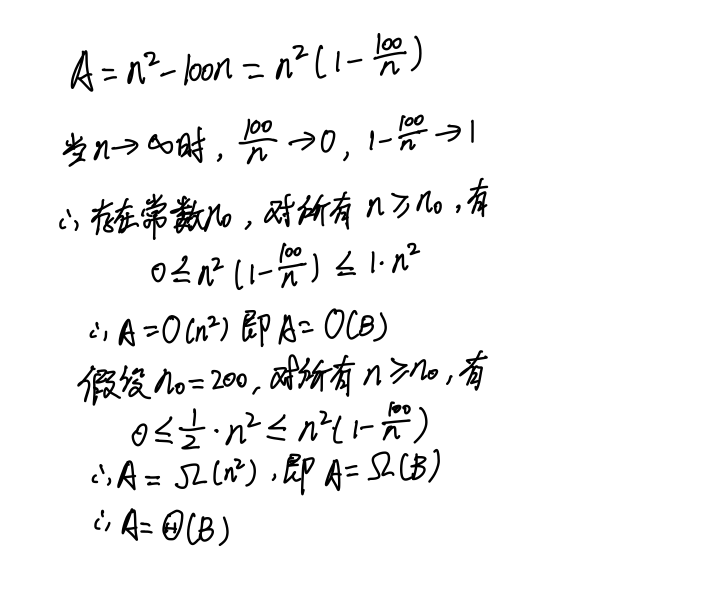 A = n² - 100n = n² (1 - 100/n)
当 n → ∞ 时, 100/n → 0, 1 - 100/n → 1
∴ 存在常数 n₀, 对所有 n ≥ n₀, 有
0 ≤ n² (1 - 100/n) ≤ 1 · n²
∴ A = O(n²) 即 A = O(B)
假设 n₀ = 200, 对所有 n ≥ n₀, 有
0 ≤ 1/2 · n² ≤ n² (1 - 100/n)
∴ A = Ω(n²), 即 A = Ω(B)
∴ A = Θ(B)